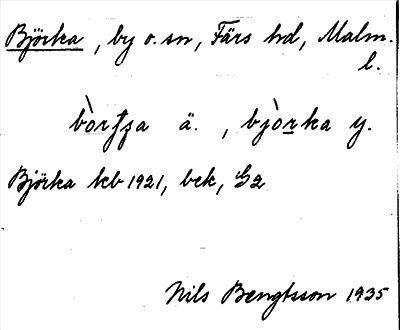 Björka, by o. sn, Färs hd, Malm.
l.
bòrʃʃa ä., bjòrka y.
Björka kb 1921, bek, G2
Nils Bengtsson 1935